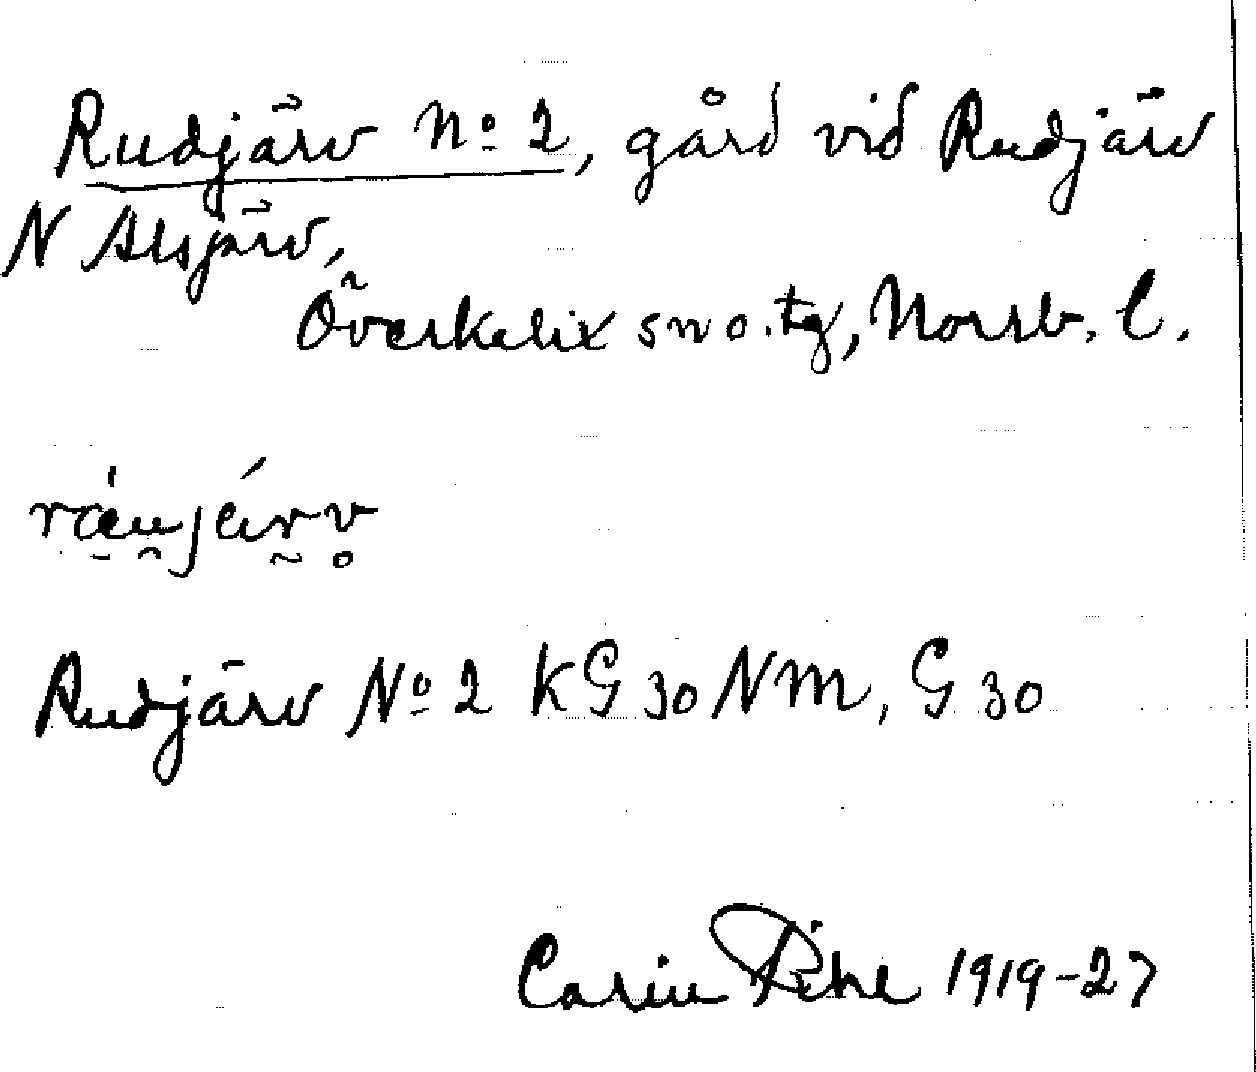 Rudjärv No 2, gård vid Rudjärv
N Alsjärv,
Överkalix sn o. tg, Norrb. l.
Rudjärv No 2 KG 30 NM, G 30
Carin Pihl 1919-27